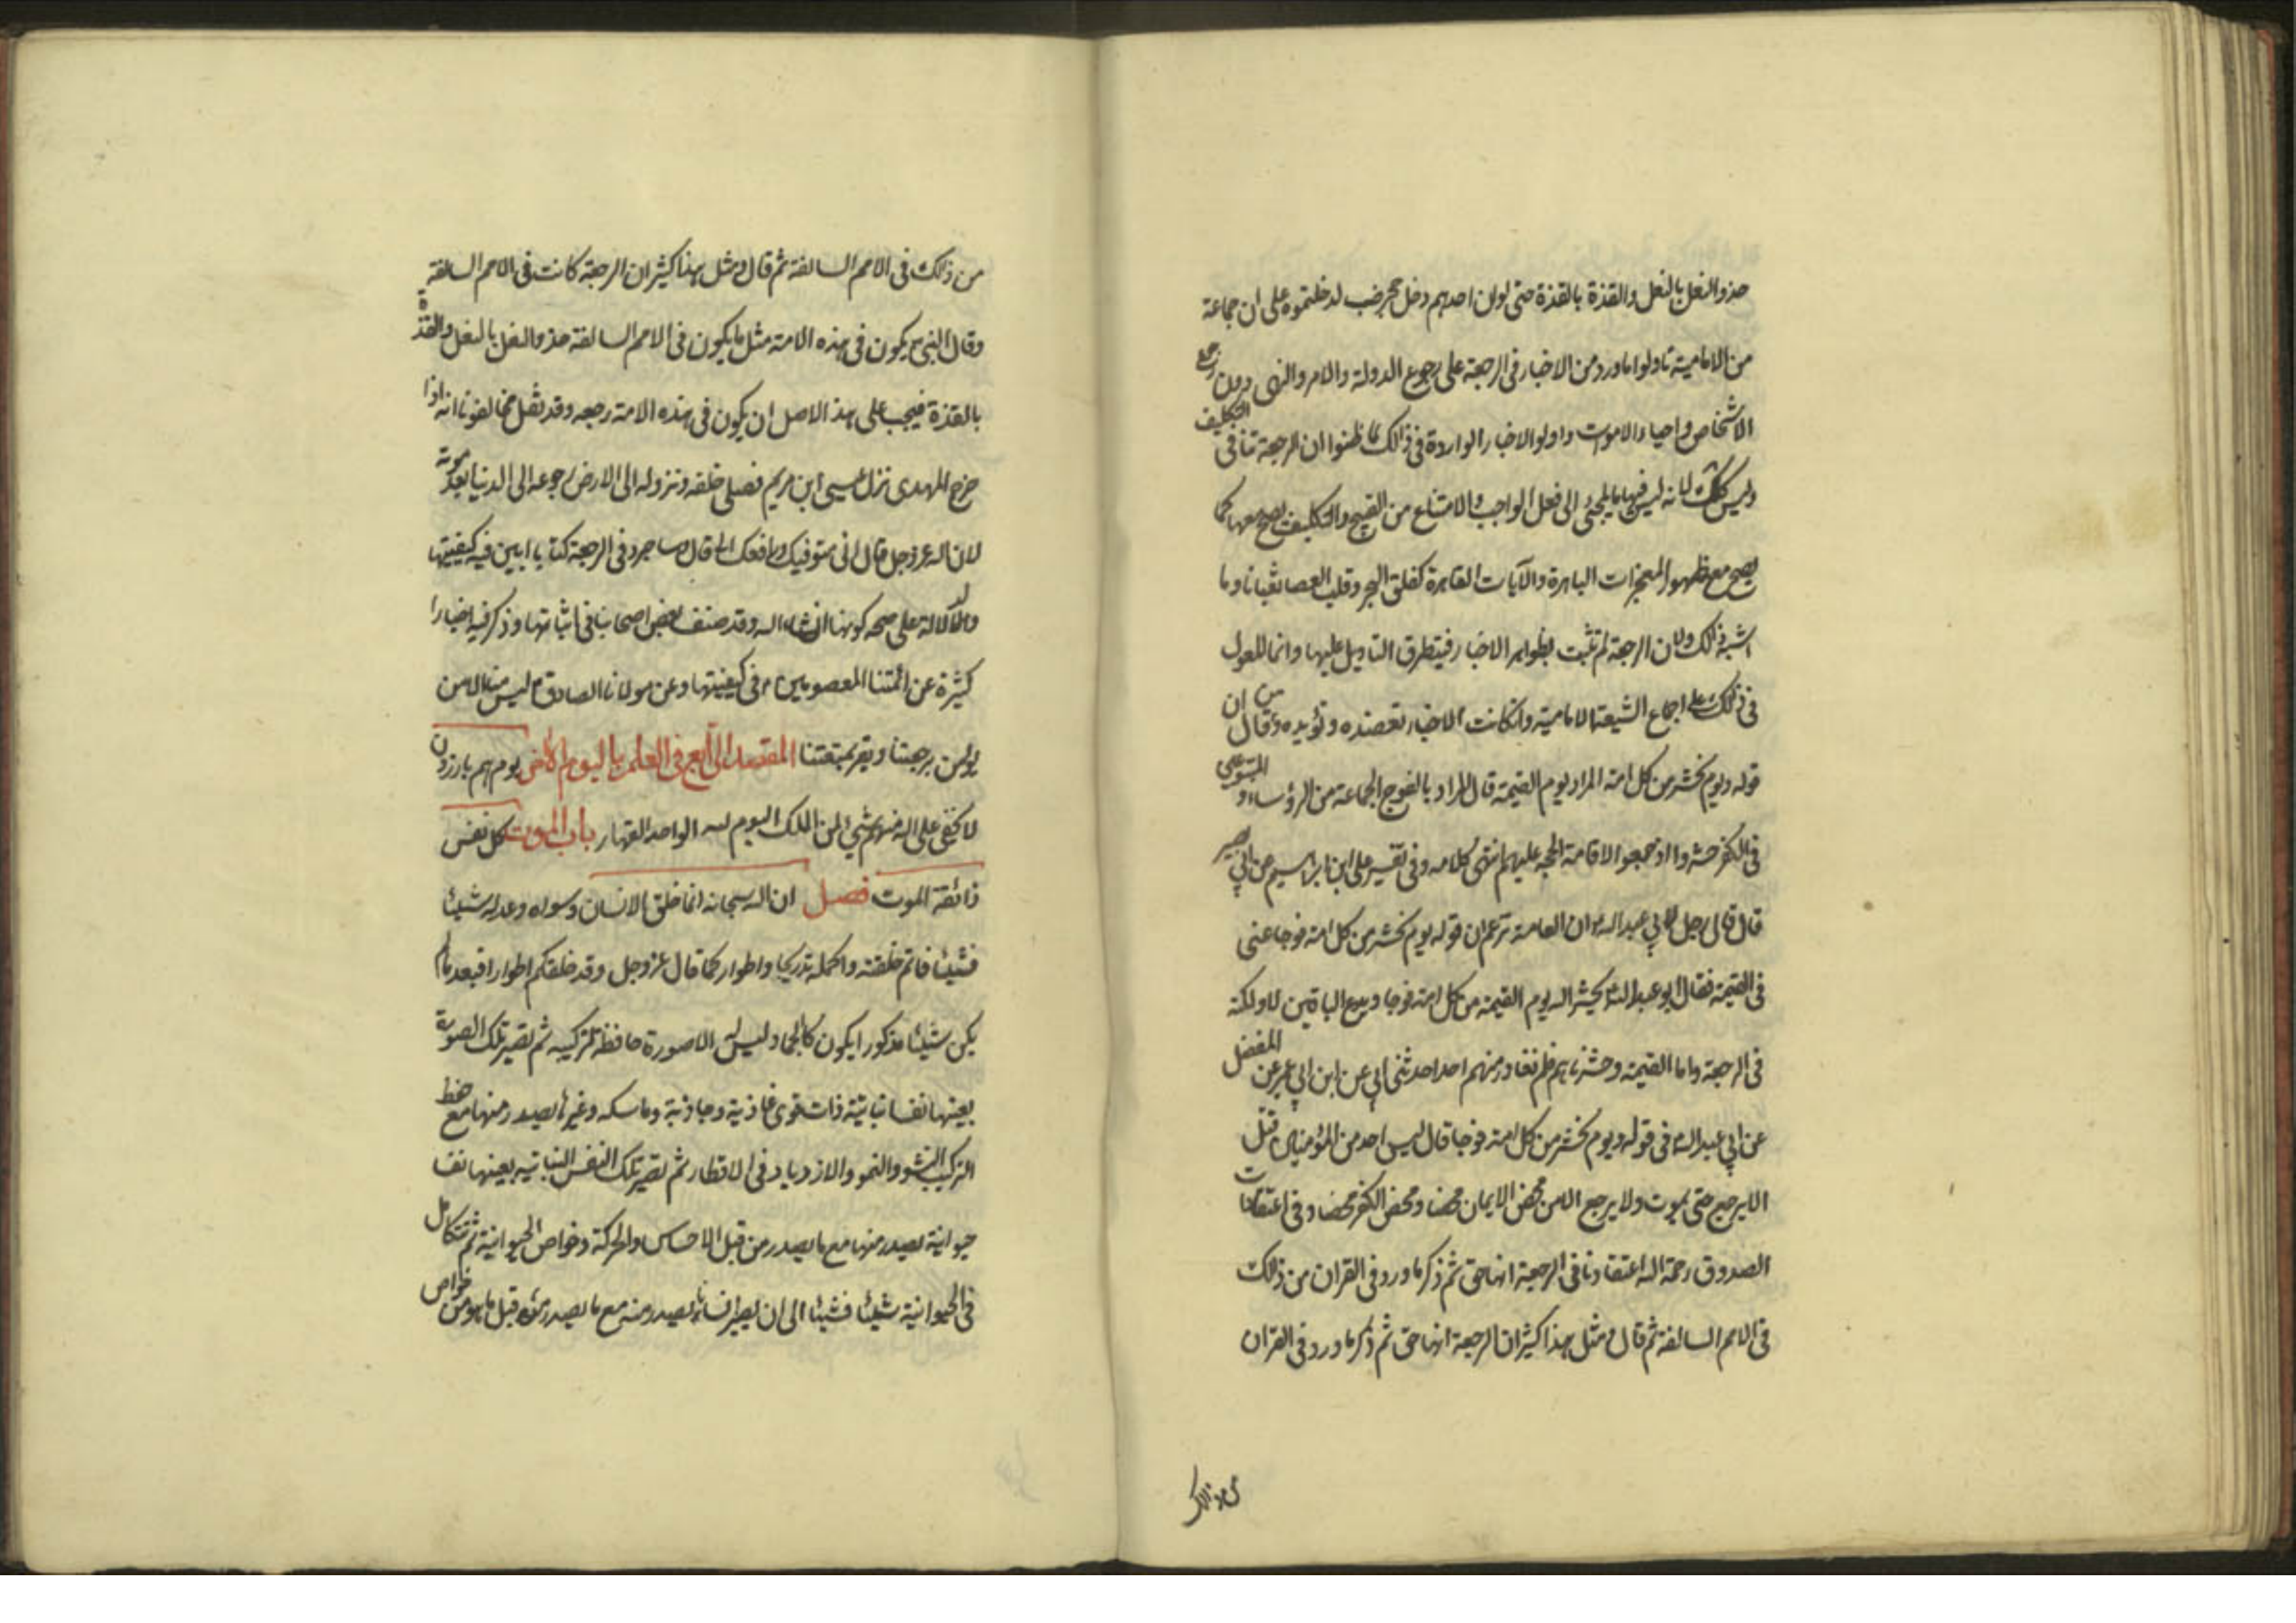 حذو النعل بالنعل والقذة بالقذة حتى لو ان احدهم دخل جحر ضب لدخلتموه على ان جماعة
من الامامية تاولوا ما ورد من الاخبار فى الرجعة على رجوع الدولة والامر والنهى دون رجوع
الاشخاص واحياء الاموات واولوا الاخبار الواردة فى ذلك لما ظنوا ان الرجعة تنافى التكليف
وليس كك لانه ليس فيها ما يلجئ الى فعل الواجب والامتناع من القبيح والتكليف يصح معها كما
يصح مع ظهور المعجزات الباهرة والآيات القاهرة كفلق البحر وقلب العصا ثعبانا وما
اشبه ذلك ولان الرجعة لم تثبت بظواهر الاخبار فيتطرق التاويل عليها وانما المعول
فى ذلك على اجماع الشيعة الامامية وان كانت الاخبار تعضده وتؤيده وقال من ان
قوله ويوم نحشر من كل امة المراد يوم القيمة قال المراد بالفوج الجماعة من الرؤساء و المتبوعين
فى الكفر حشروا او جمعوا لاقامة الحجة عليهم انتهى كلامه وفى تفسير على ابن ابراهيم عن ابي بصير
قال قال رجل لابي عبد الله ان العامة تزعم ان قوله يوم نحشر من كل امة فوجا عنى
فى القيمة فقال ابو عبد الله يحشر الله يوم القيمة من كل امة فوجا ويدع الباقين لا ولكنه
فى الرجعة واما القيمة وحشرناهم فلم نغادر منهم احدا حدثنى ابي عن ابن ابي عمير عن المفضل
عن ابي عبد الله فى قوله ويوم نحشر من كل امة فوجا قال ليس احد من المؤمنين قتل
الا يرجع حتى يموت ولا يرجع الا من محض الايمان محضا ومحض الكفر محضا وفى اعتقادات
الصدوق رحمة الله اعتقادنا فى الرجعة انها حق ثم ذكر ما ورد فى القران من ذلك
فى الامم السالفة ثم قال ومثل هذا كثير ان الرجعة انها حق ثم ذكر ما ورد فى القران
من ذلك فى الامم السالفة ثم قال ومثل هذا كثير ان الرجعة كانت فى الامم السالفة
وقال النبى يكون فى هذه الامة مثل ما يكون فى الامم السالفة حذو النعل بالنعل والقذة
بالقذة فيجب على هذ الاصل ان يكون فى هذه الامة رجعه وقد نقل مخالفونا انه اذا
خرج المهدى نزل عيسى ابن مريم فصلى خلفه ونزوله الى الارض رجوعه الى الدنيا بعد موته
لان الله عز وجل قال انى متوفيك ورافعك الى قال وساجرد فى الرجعة كتابا ابين فيه كيفيتها
والدلالة على صحه كونها انشاء الله وقد صنف بعض اصحابنا فى اثباتها وذكر فيه اخبارا
كثيرة عن ائمتنا المعصومين فى كيفيتها وعن مولانا الصادق ليس منا من لم
يؤمن برجعتنا ويقر بمتعتنا المقصد الرابع فى العلم باليوم الآخر يوم هم بارزون
لا يخفى على الله منهم شيء لمن الملك اليوم لله الواحد القهار باب الموت كل نفس
ذائقة الموت فصل ان الله سبحانه انما خلق الانسان وسواه وعدله شيئا
فشيئا فاتم خلقته واكمله تدريجا واطوارا كما قال عز وجل وقد خلقكم اطوارا فبعد ما لم
يكن شيئا مذكورا يكون كالجماد ليس له الا صورة حافظة لتركيبه ثم تصير تلك الصورة
بعينها نفسا نباتية ذات قوى غاذية وجاذبة وماسكه وغيرها يصدر منها مع حفظ
التركيب النشو والنمو والازدياد فى الاقطار ثم تصير تلك النفس النباتيه بعينها نفسا
حيوانية يصدر منها مع ما يصدر من قبل الاحساس والحركة وخواص الحيوانية ثم تتكامل
فى الحيوانية شيئا فشيئا الى ان يصير انسانا يصدر منه مع ما يصدر منه قبل ما هو من خواص